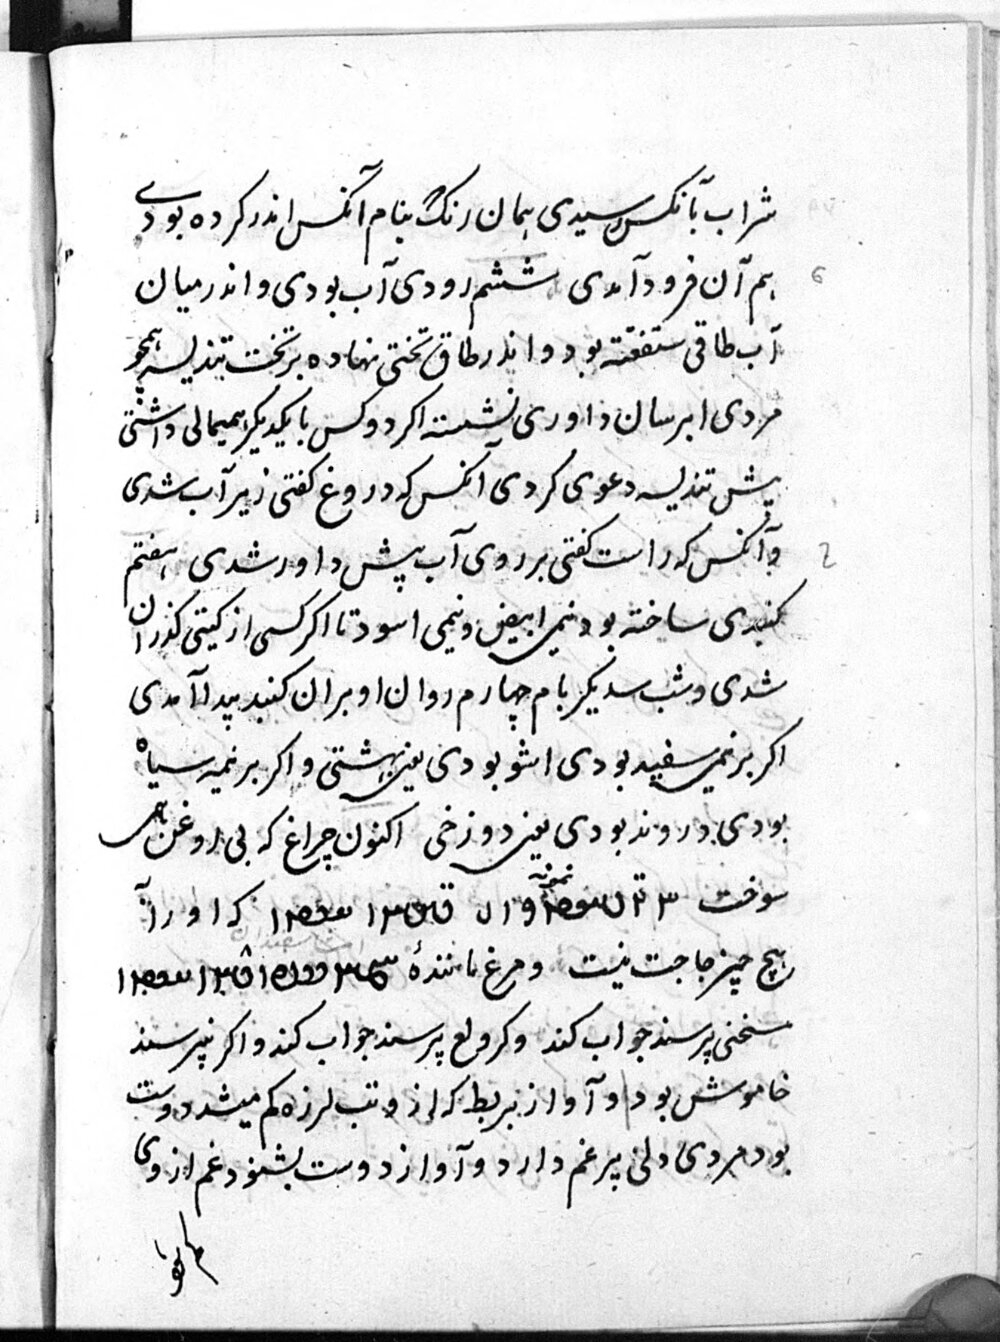 شراب بآنکس رسیدی همان رنگ بنام آنکس اندر کرده بودی
هم آن فرود آمدی ششم رودی آب بودی و اندر میان
آب طاقی ستفقته بود و اندر طاق تختی نهاده بر تخت تندیسه همچو
مردی ابرسان داوری نشسته اکر دو کس با یکدیکر همیمالی داشتی
پیش تندیسه دعوی کردی آنکس که دروغ کفتی زیر آب شدی
و آنکس که راست کفتی بر روی آب پیش داور شدی هفتم
کنبدی ساخته بود نیمی ابیض و نیمی اسود تا اکر کسی از کیتی کذران
شدی و شب سدیکر بام چهارم روان او بران کنبد پیدا آمدی
اکر بر نیمی سفید بودی اشو بودی یعنی بهشتی و اکر بر نیمه سیاه
بودی دروند بودی یعنی دوزخی اکنون چراغ که بی روغن همی
سوخت نمونه که او را
هیچ چیز حاجت نیست و مرغ مانندهٔ
سخنی پرسند جواب کند و پرسند جواب کند و اکر نپرسند
خاموش بود و آواز بربط که از و تب لرزه کم میشد دوست
بود مردی دلی پر غم دارد و آواز دوست بشنود غم از وی